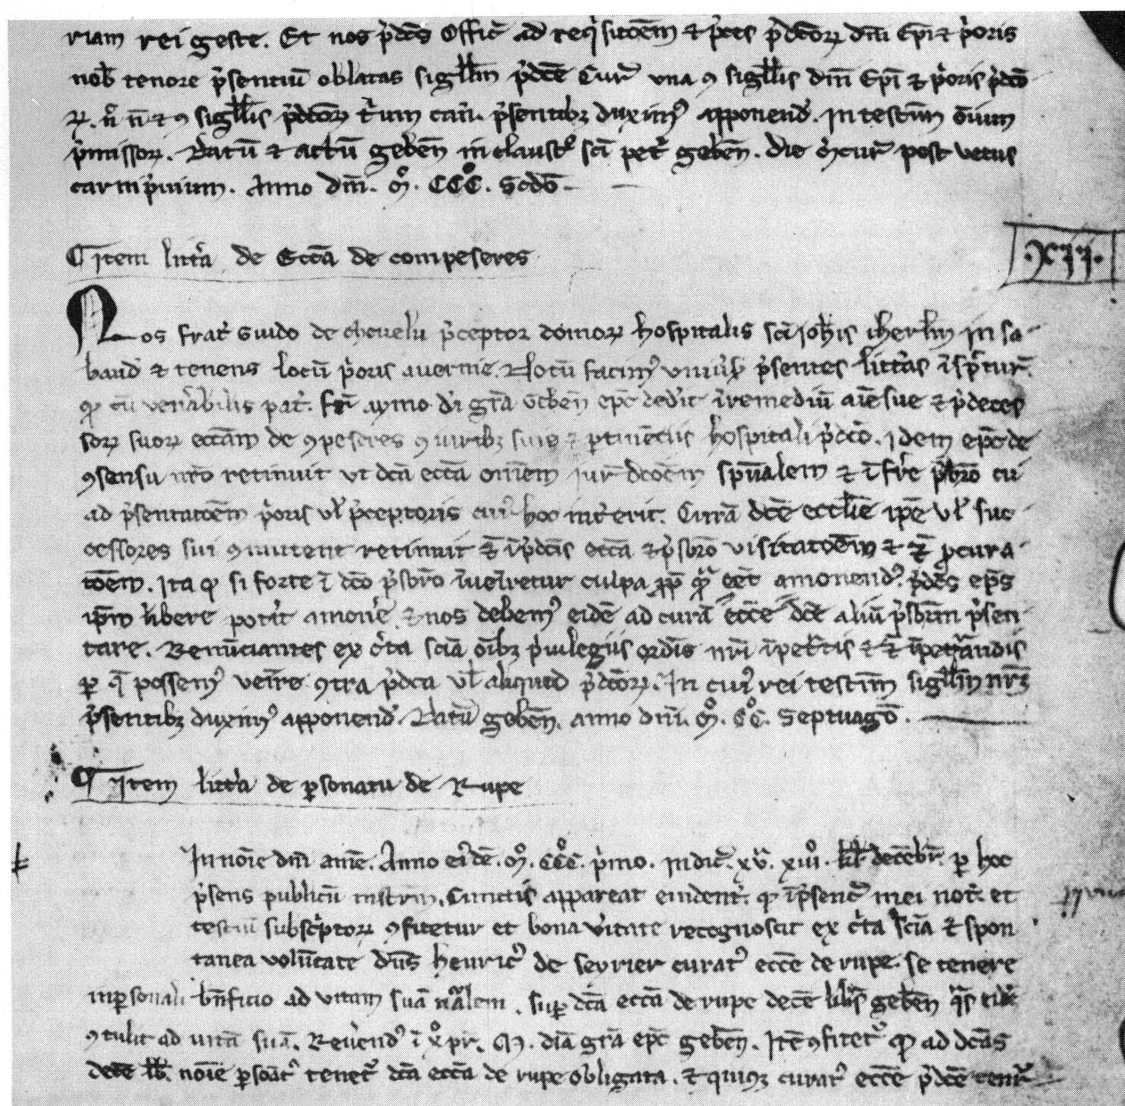 riam rei geste. Et nos p̃dc̃s Offic̃ ad req̃sitõem ⁊ p̃ces p̃dc̃orꝝ dñi Ep̃i ⁊ p̃oris
nob̃ tenore p̃sentiũ oblatas sigill̃m p̃dc̃e Cur̃ vna ꝯ sigill̃is dñi Ep̃i ⁊ p̃oris p̃dc̃o
ꝝ. ñ ñ ⁊ ꝯ sigill̃is p̃dc̃orꝝ t̃um can̄. p̃sentibꝫ duximꝰ apponend̃. In testim̃ õium
p̃missorꝝ. Datũ ⁊ actũ geben̄ in claust̃o sc̃i pet̃ geben̄. die m̃cur̃ post vetus
carnip̃uium. Anno dñi. m̊. CCC̊. Scdõ.
¶ Item litt̃a de Ecc̃a de compeseres
.XII.
Nos frat̃ Guido de chevelu p̃ceptor domorꝝ hospitalis sc̃i ioh̃is iherl̃m in sa
baud̃ ⁊ tenens locũ p̃oris auernie. Notũ facimꝰ vniũsꝭ p̃sentes litt̃as ĩsp̃tur̃
ꝙ cũ ven̄abilis pat̃. fr̃ aymo di g̃ra geben̄ ep̃c ded̃it ĩ remediũ aĩe sue ⁊ p̃deces
sorꝝ suorꝝ ecc̃am de ꝯpeseres ꝯ iuribꝫ suis ⁊ ptinẽciis hospitali p̃dc̃o. Idem ep̃c de
ꝯsensu nr̃o retinuit ĩ dc̃a ecc̃a omñem iur̃ dc̃oẽm sp̃ũalem ⁊ ĩ fr̃e p̃bro cui
ad p̃sentatõem p̃oris ul̃ p̃ceptoris cuiꝰ hoc int̃erit. Curã dc̃e eccl̃ie ip̃e ul̃ suc
cessores sui ꝯmittent retinuit ⁊̃ ĩ p̃dc̃is ecc̃a ⁊ p̃sbro visitatõem ⁊ ⁊̃ ꝓcura
tõem. Ita ꝙ si forte ĩ dc̃o p̃sbr̃o ĩueĩretur culpa ꝓp̃ q̃ eẽt amonendꝰ p̃dc̃s ep̃s
ip̃m libere pot̃it amou̇e ⁊ nos debemꝰ eidẽ ad curã ecc̃e dc̃e aliũ p̃sbr̃m p̃sen
tare. Renũciantes ex c̃ta sciã õibꝫ p̃uilegiis ordĩs nr̃i ĩpet̃tis ⁊ ⁊̃ ĩpet̃andis
ꝑ q̃ possemꝰ ven̄ire ꝯtra p̃dc̃a ul̃ aliquid p̃dc̃orꝝ. In cuiꝰ rei testim̃ sigill̃m nr̃m
p̃sentibꝫ duximꝰ apponend̃. Datũ geben̄. anno dñi. m̊. CC̊. Septuagõ.
¶ Item litt̃a de psonatu de Rupe
In noĩe dñi amẽ. Anno eiꝰdẽ. m̊. CCC̊. p̃mo. indic̃. xv̊. xiiij̊. kl̃ decẽbr̃. ꝑ hoc
p̃sens publicũ instr̃m. Cunctis appareat euident̃. ꝙ ĩ p̃senc̃ mei not̃. et
testiũ subsc̃ptorꝝ ꝯfitetur et bona vĩtate recognoscit ex c̃ta sciã ⁊ spon
tanea volũtate dñs henricꝰ de seyrier curatꝰ ecc̃e de rupe. se tenere
in psonali bñficio ad vitam suã nãlem. sup dc̃a ecc̃a de rupe decẽ libr̃s geben̄ q̃s eid̃
ꝯtulit ad vitã suã. Reuẽrendꝰ ĩ x̊ pr̃. m. diã g̃ra ep̃c geben̄. Itẽ ꝯfitet̃ ꝙ ad dc̃as
decẽ lb̃. noĩe psoãt̃ tenet̃ dc̃a ecc̃a de rupe obligata. ⁊ quiuꝫ curatꝰ ecc̃e p̃dc̃e tent̃